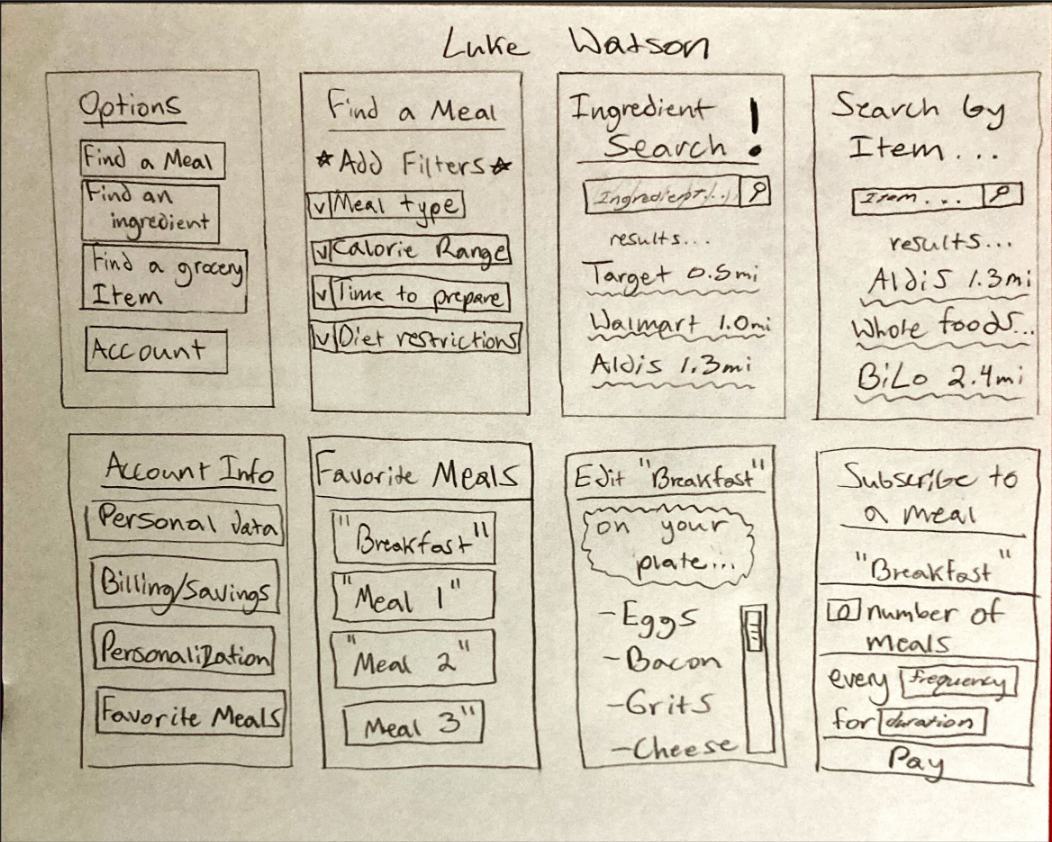 Luke Watson
Options
Find a Meal
Find an
ingredient
Find a grocery
Item
Account
Find a Meal
*Add Filters*
v Meal type
v Calorie Range
v Time to prepare
v Diet restrictions
Ingredient
Search !
Ingredient...
results...
Target 0.5mi
Walmart 1.0mi
Aldis 1.3mi
Search by
Item...
Item...
results...
Aldis 1.3mi
Whole foods...
BiLo 2.4mi
Account Info
Personal data
Billing/Savings
Personalization
Favorite Meals
Favorite Meals
"Breakfast"
"Meal 1"
"Meal 2"
Meal 3"
Edit "Breakfast"
on your
plate...
-Eggs
-Bacon
-Grits
-Cheese
Subscribe to
a meal
"Breakfast"
0 number of
meals
every frequency
for duration
Pay